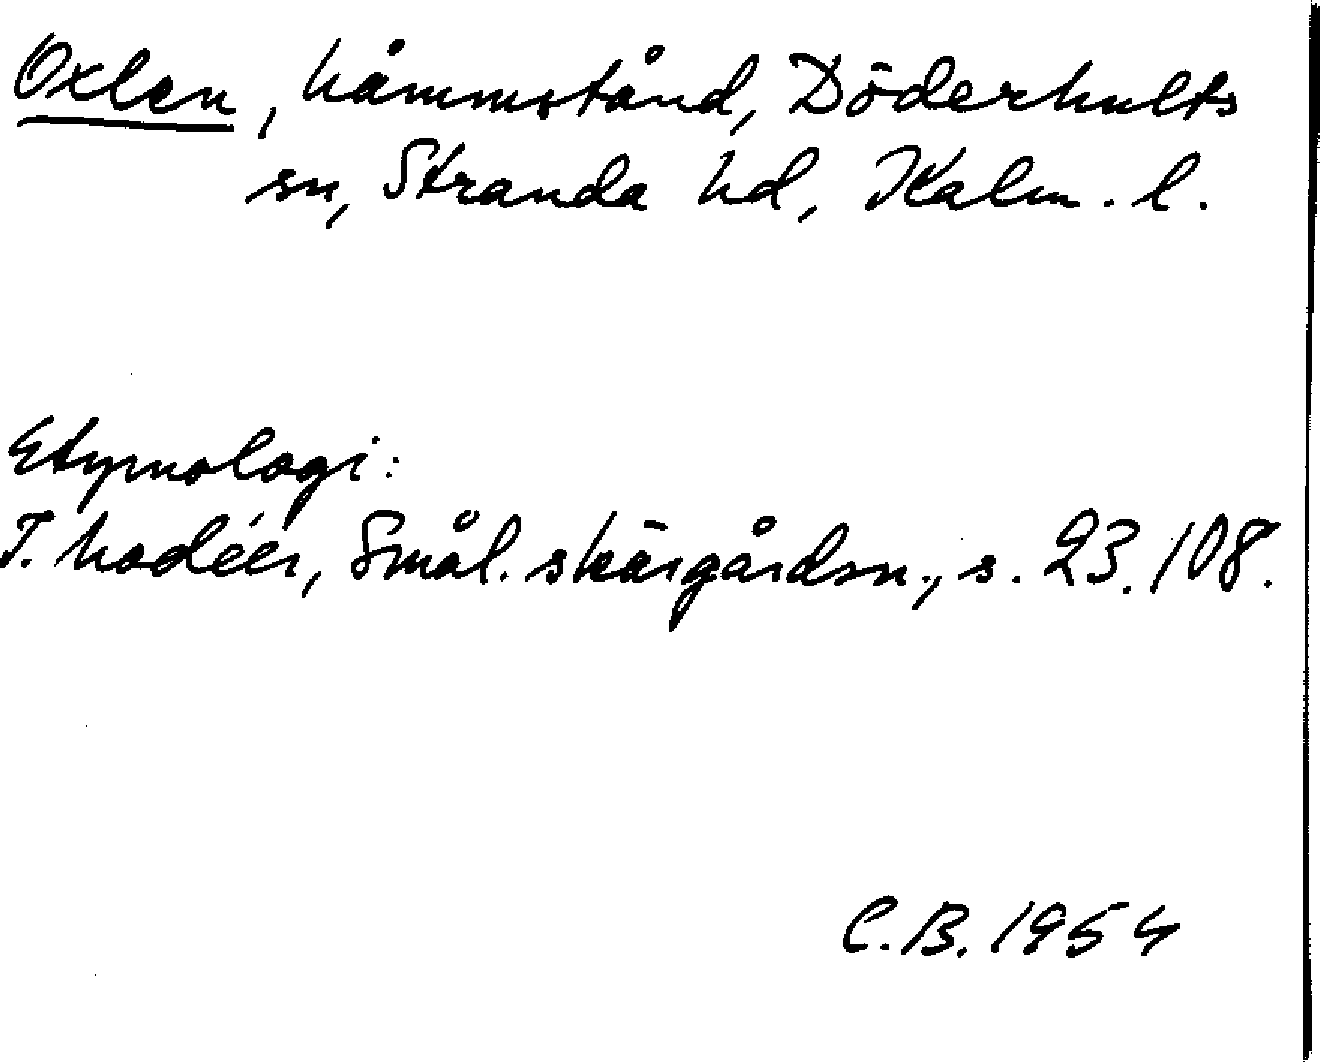 Oxlen, håmmstånd, Döderhults
sn, Stranda hd, Kalm. l.
Etymologi:
I. Modéer, Smål. skärgårdsn., s. 23, 108.
C.B. 1954